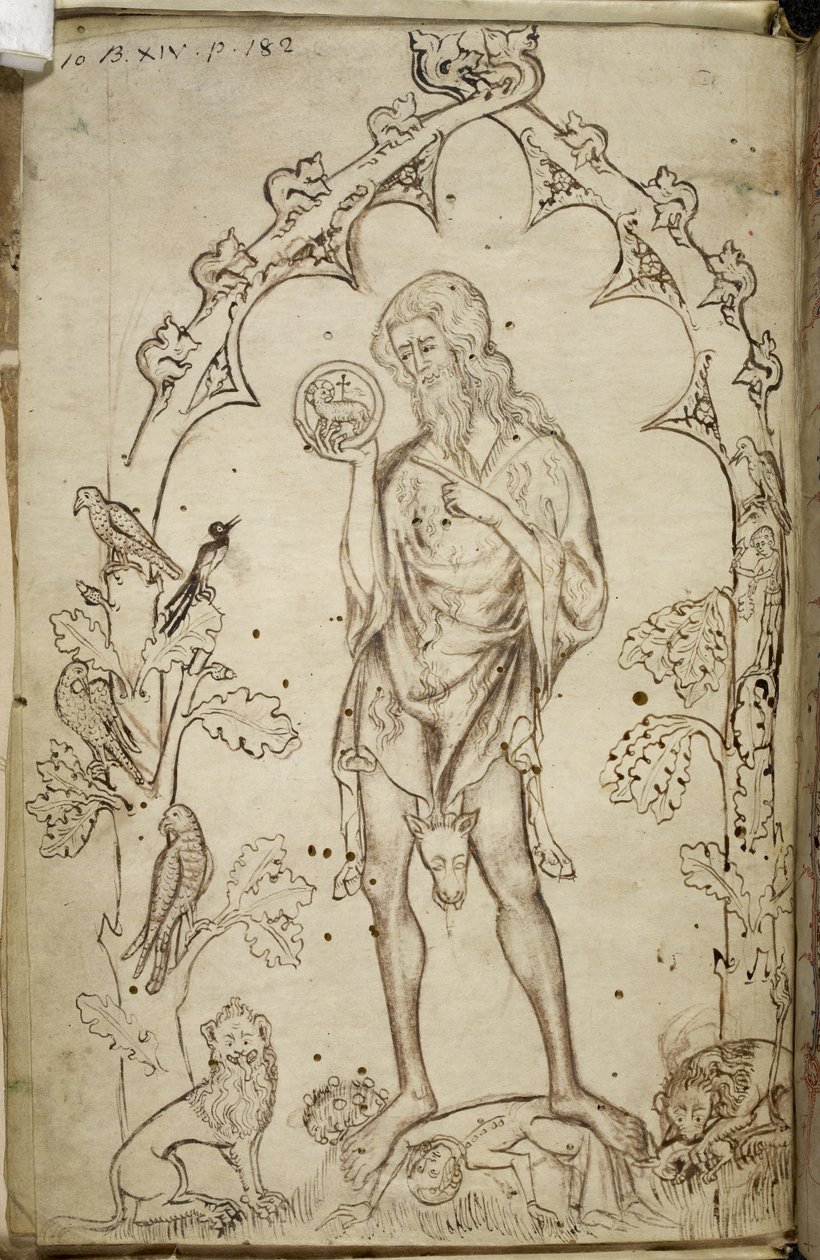 10 B. XIV. p. 182